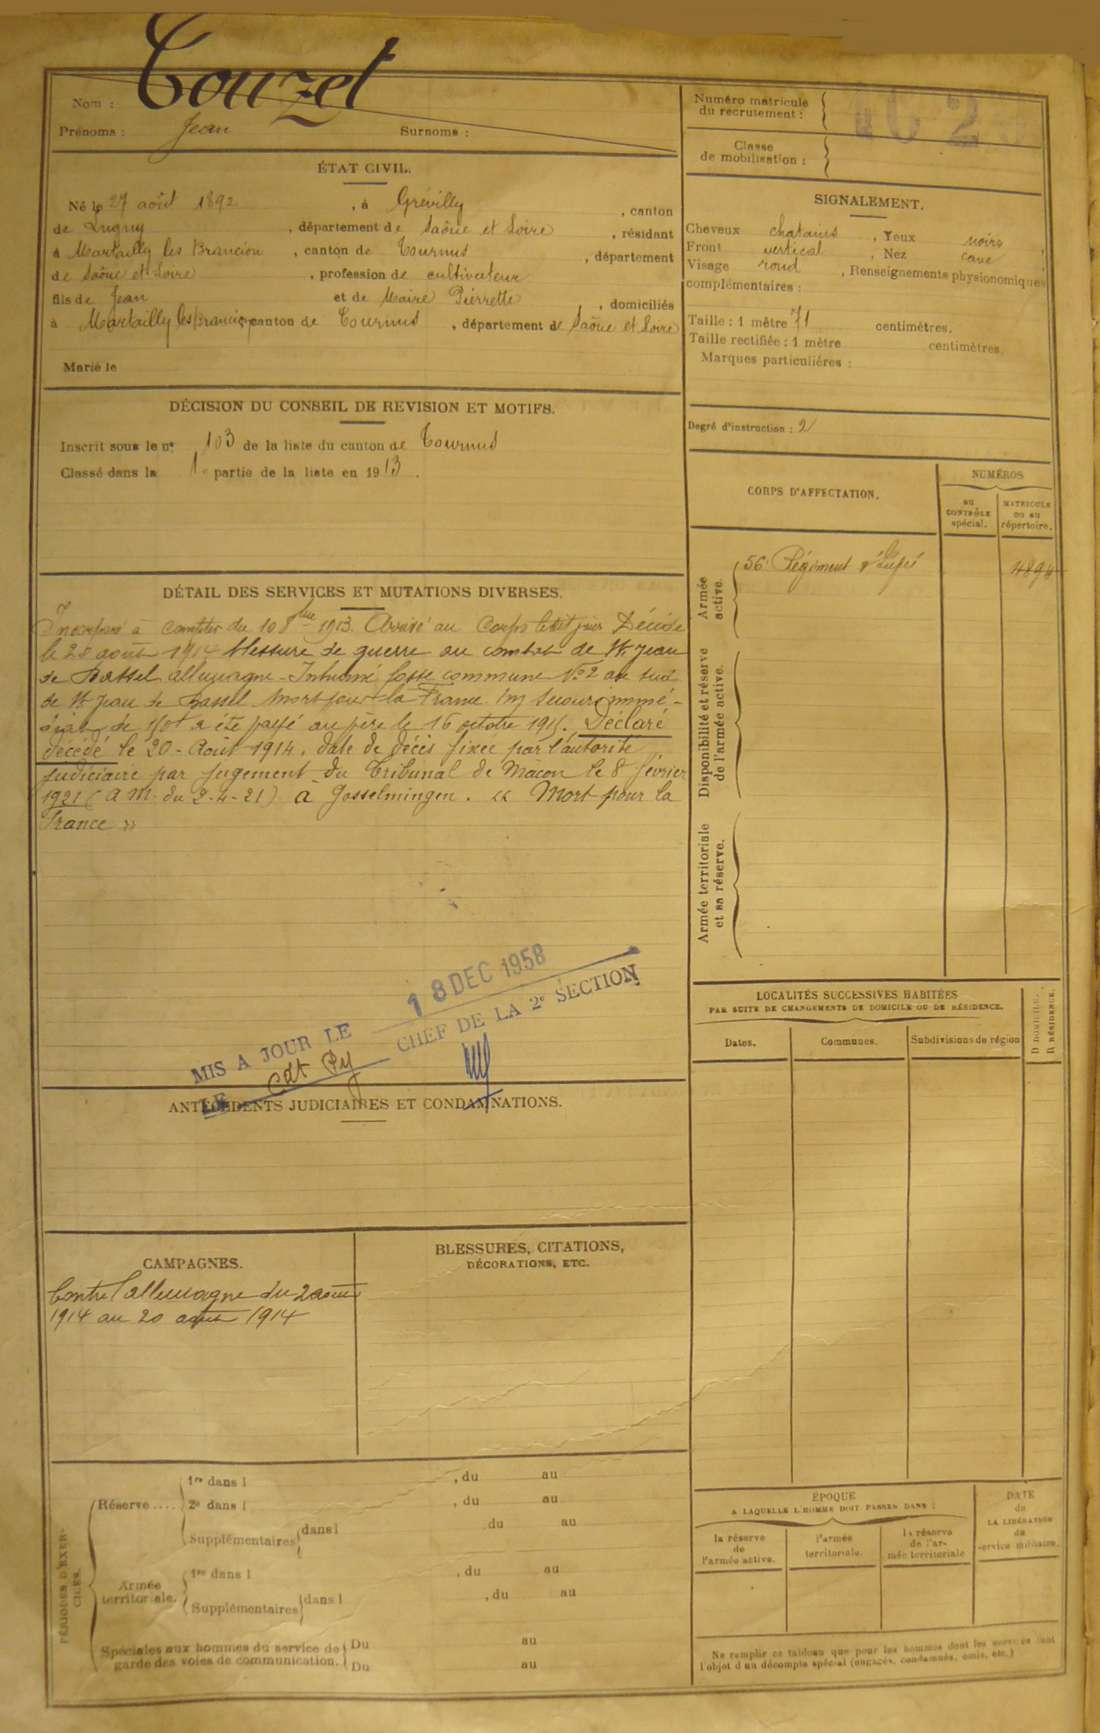 Nom : Touzet
Prénoms : Jean Surnoms :
ÉTAT CIVIL.
Né le 27 août 1892, à Grévilly, canton
de Lugny, département de Saône et Loire, résidant
à Martailly les Brancion, canton de Tournus, département
de Saône et Loire, profession de cultivateur
fils de Jean et de Maire Pierrette, domiciliés
à Martailly les Brancion canton de Tournus, département de Saône et Loire
Marié le
DÉCISION DU CONSEIL DE REVISION ET MOTIFS.
Inscrit sous le nº 103 de la liste du canton de Tournus
Classé dans la 1e partie de la liste en 1913.
DÉTAIL DES SERVICES ET MUTATIONS DIVERSES.
Incorporé à compter du 10 8bre 1913. Arrivé au Corps le dit jour Décédé
le 28 août 1914 blessure de guerre au combat de St Jean
de Bassel allemagne - Inhumé fosse commune No 2 au sud
de St Jean de Bassel Mort pour la France. Un secours immé-
diat de 150f a été payé au père le 16 octobre 1915. Déclaré
décédé le 20 - Août 1914, date de décès fixée par l'autorité
judiciaire par jugement du Tribunal de Mâcon le 8 février
1921 (A M. du 2-4-21) à Gosselmingen. « Mort pour la
France »
18 DEC 1958
MIS A JOUR LE
LE Cdt Py CHEF DE LA 2e SECTION
ANTÉCÉDENTS JUDICIAIRES ET CONDAMNATIONS.
CAMPAGNES.
Contre l'allemagne du 2 août
1914 au 20 août 1914
BLESSURES, CITATIONS,
DÉCORATIONS, ETC.
PÉRIODES D'EXER-
CICES.
Réserve ....
1re dans l , du au
2e dans l , du au
Supplémentaires dans l , du au
Armée
territoriale.
1re dans l , du au
Supplémentaires dans l , du au
Spéciales aux hommes du service de
garde des voies de communication.
Du au
Du au
Numéro matricule
du recrutement :
Classe
de mobilisation :
SIGNALEMENT.
Cheveux chatains, Yeux noirs,
Front vertical, Nez cave,
Visage rond, Renseignements physionomiques
complémentaires :
Taille : 1 mètre 71 centimètres.
Taille rectifiée : 1 mètre centimètres.
Marques particulières :
Degré d'instruction : 2
CORPS D'AFFECTATION.
NUMÉROS
au
CONTRÔLE
spécial.
MATRICULE
ou au
répertoire.
Armée
active.
56e Régiment d'Infie
Disponibilité et réserve
de l'armée active.
Armée territoriale
et sa réserve.
LOCALITÉS SUCCESSIVES HABITÉES
PAR SUITE DE CHANGEMENTS DE DOMICILE OU DE RÉSIDENCE.
Dates.
Communes.
Subdivisions de région
D DOMICILE.
R RÉSIDENCE.
ÉPOQUE
A LAQUELLE L'HOMME DOIT PASSER DANS :
la réserve
de
l'armée active.
l'armée
territoriale.
la réserve
de l'ar-
mée territoriale
DATE
de
LA LIBÉRATION
du
service militaire.
Ne remplir ce tableau que pour les hommes dont les services sont
l'objet d'un décompte spécial (engagés, condamnés, omis, etc.)